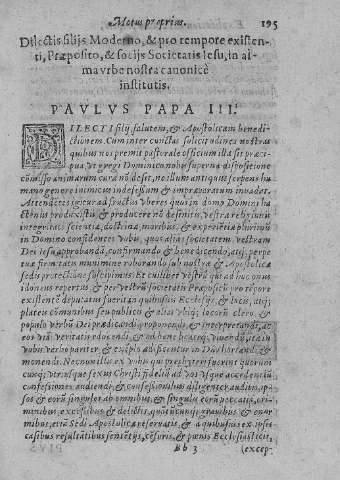 Motus proprius. 195
Dilectis filijs Moderno, & pro tempore existen-
ti, Præposito, & socijs Societatis Iesu, in al
ma vrbe nostra canonicè
institutis.
PAVLVS PAPA III.
DILECTI filij, salutem, & Apostolicam benedi-
ctionem. Cum inter cunctas solicitudines nostras
quibus nos premit pastorale officium illa sit præci-
pua, vt gregi Dominico nobis superna dispositione
cōmisso animarum cura nō desit, nō illum antiquus serpens hu
mani generis inimicus indefessum & imparatum inuadat.
Attendētes igitur ad fructus vberes quos in domo Domini ha
ctenùs produxistis & producere nō desinitis, vestra religionis
integritate scientia, doctrina, moribus, & experiētia plurimùm
in Domino confidentes vobis, quos aliàs societatem vestram
Dei Iesu approbandā, confirmando & benedicendo, atq; perpe
tua firmitatis munimine roborando sub nostra & Apostolicæ
sedis protectione suscepimus. Et cuilibet vestrū qui ad hoc vnus
idoneus repertus & per vestrūm societatis Præpositū pro tēpore
existentē deputatus fuerit in quibusuis Ecclesijs, & locis, atq;
plateis cōmunibus seu publicis & aliàs vbiq; locorū clero, &
populo verbū Dei prædicandi proponendi & interpretandi, ac
eos viā veritatis edocendi, & ad bene beateq; viuendū, ita in
vobis verbo pariter & exēplo ædificentur in
monendi. Necnon illis ex vobis qui presbyteri fuerint quorum
cunq; vtriusque sexus Christi fidelium ad vos vndique accedentiū
confessiones audiendi, & confessionibus diligenter auditis, ip-
sos & eorū singulos ab omnibus, & singulis eorū peccatis, cri-
minibus excessibus & delictis, quantumcunq; grauibus & enor
mibus, etiā Sedi Apostolicæ reseruatis, & à quibusuis ex ipsis
casibus resultātibus sentētijs, cēsuris, & pœnis Ecclesiasticis,
Bb 3 (excep-